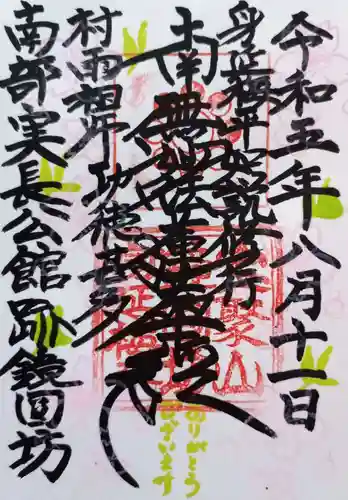 令和五年八月十一日
身延 如説修行
南無妙法蓮華経
功徳甚多
南部実長公館跡鏡圓坊
ありがとう
ございます